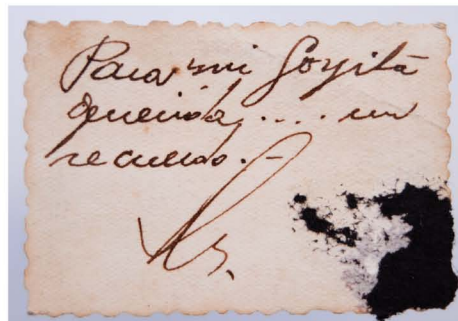 Para mi Goyita
querida, .... un
recuerdo.-